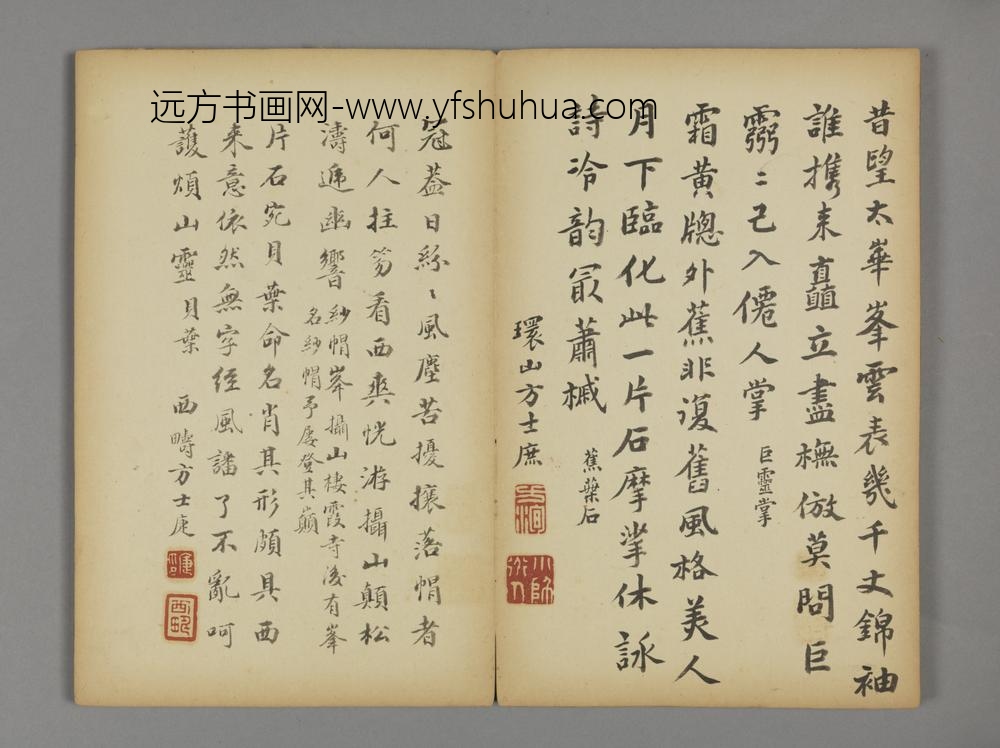 远方书画网-www.yfshuhua.com
昔望太華峯雲表幾千丈錦袖
誰攜来矗立盡橅倣莫問巨
靈〻已入僊人掌 巨靈掌
霜黄牕外蕉非復舊風格美人
月下臨化此一片石摩挲休詠
詩冷韵最蕭槭 蕉葉石
環山方士庶
冠蓋日紛〻風塵苦擾攘落帽者
何人拄笏看西爽恍游攝山顛松
濤遞幽響 紗帽峯攝山棲霞寺後有峯
名紗帽予屡登其巔
片石宛貝葉命名肖其形頗具西
来意依然無字经風譒了不亂呵
護煩山靈 貝葉
西疇方士庹